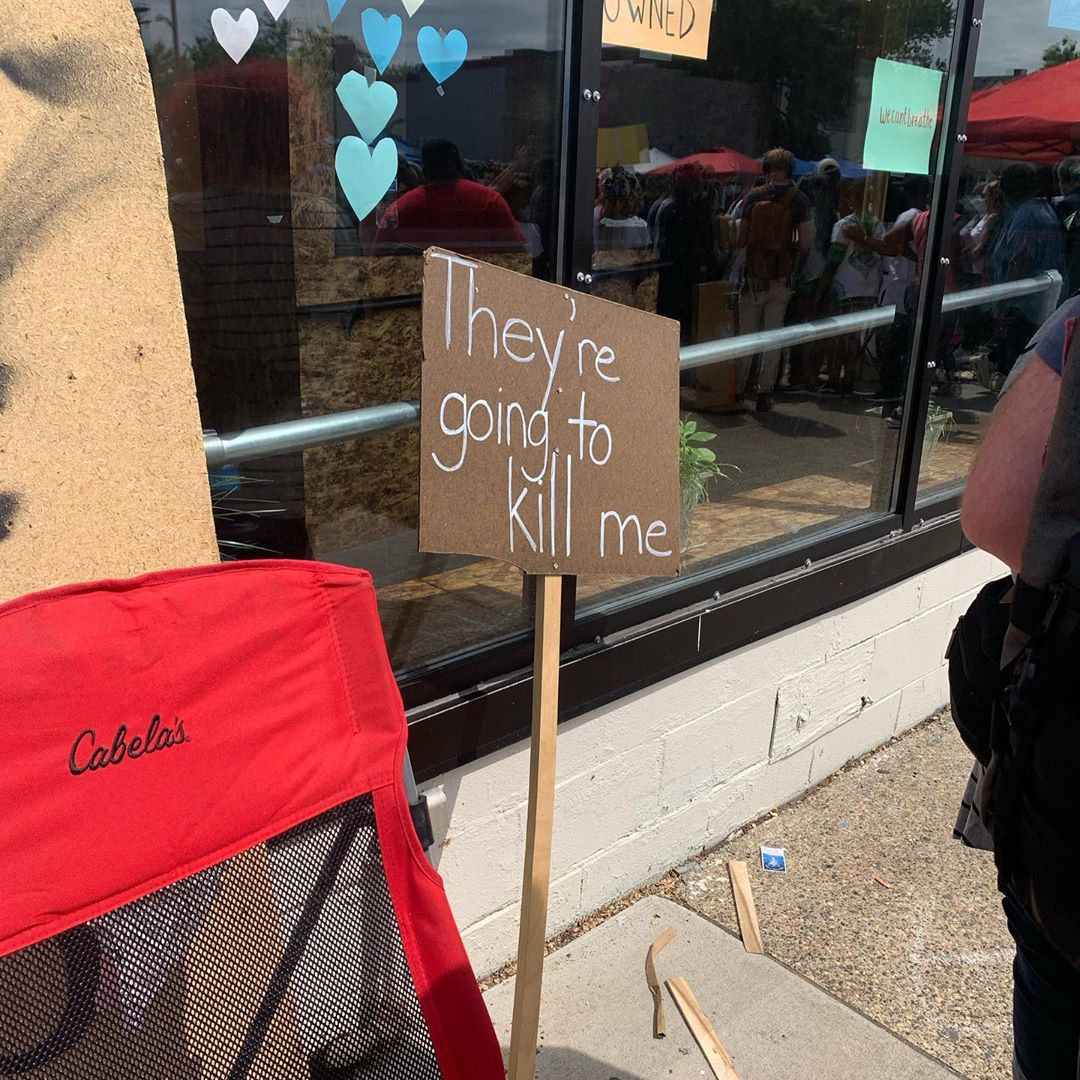 OWNED
wecantbreathe
They're
going to
kill me
Cabela's